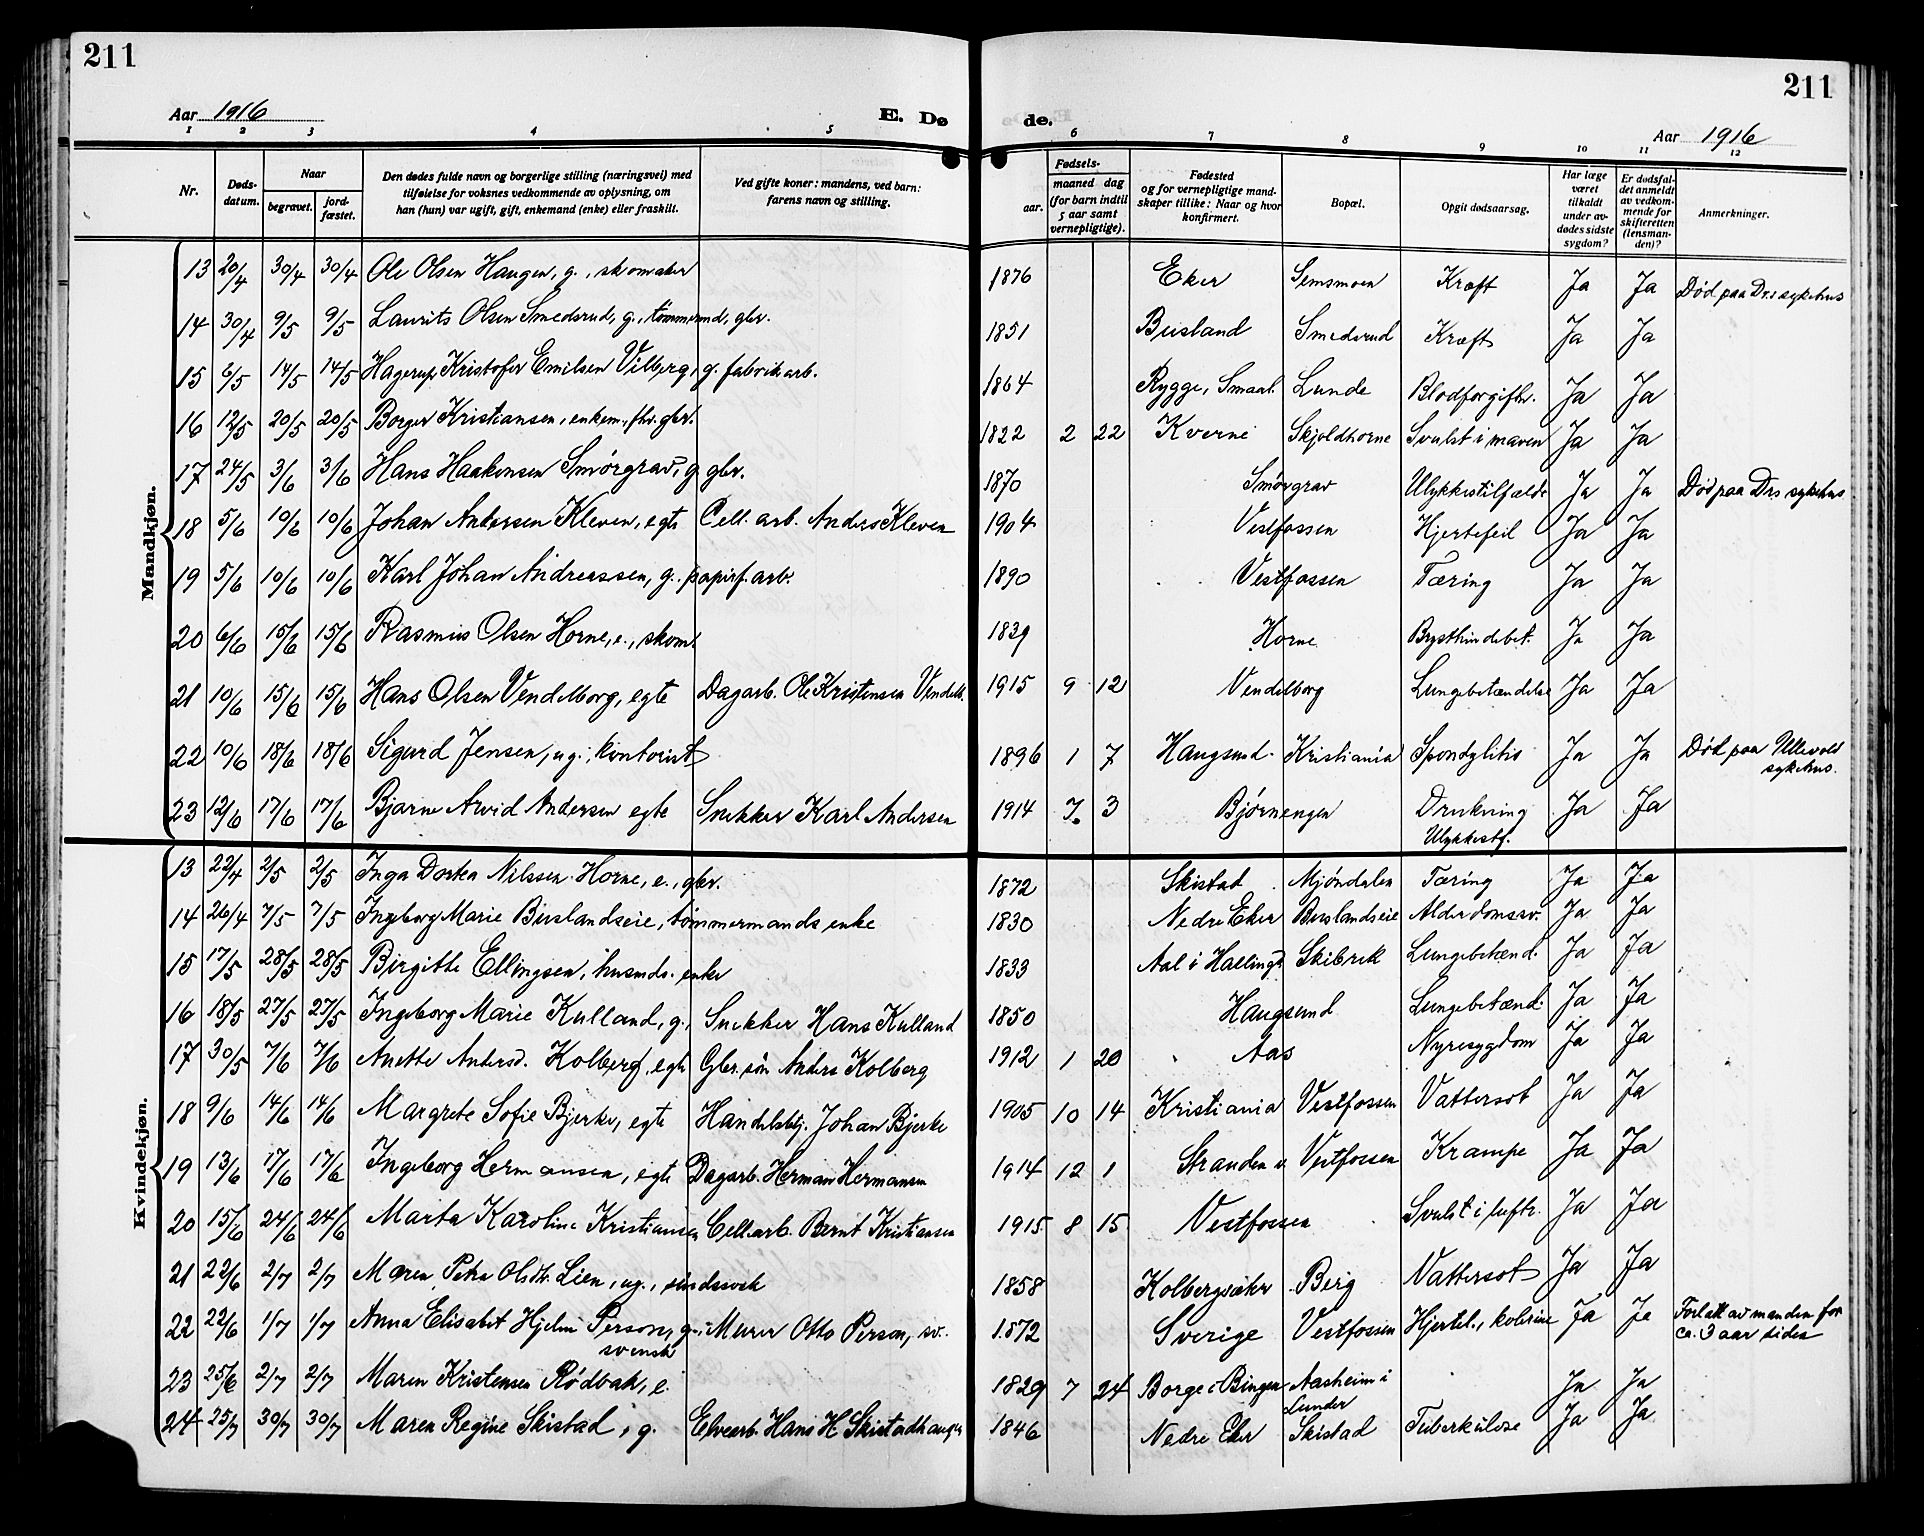 211
211
Aar 1916
E. Dø
de.
Aar 1916
1 2 3 4 5 6 7 8 9 10 11 12
Nr. Døds-datum. Naar begravet. jord-fæstet. Den dødes fulde navn og borgerlige stilling (næringsvei) med tilføielse for voksnes vedkommende av oplysning, om han (hun) var ugift, gift, enkemand (enke) eller fraskilt. Ved gifte koner: mandens, ved barn: farens navn og stilling. Fødsels- aar. maaned dag (for barn indtil 5 aar samt vernepligtige). Fødested og for vernepligtige mand-skaper tillike: Naar og hvor konfirmert. Bopæl. Opgit dødsaarsag. Har læge været tilkaldt under av-dødes sidste sygdom? Er dødsfal-det anmeldt av vedkom-mende for skifteretten (lensman-den)? Anmerkninger.
Mandkjøn.
13 20/4 30/4 30/4 Ole Olsen Haugen, g., skomaker 1876 Eker Semsmoen Kræft Ja Ja Død paa Drs sykehus
14 30/4 9/5 9/5 Laurits Olsen Smedsrud, g., tømmermd, gbr. 1851 Busland Smedsrud Kræft Ja Ja
15 6/5 14/5 14/5 Hagerup Kristofer Emilsen Vilberg, g. fabrikarb. 1864 Rygge, Smaal. Lunde Blodforgiftn. Ja Ja
16 12/5 20/5 20/5 Borger Kristiansen, enkem., fhv. gbr. 1822 2 22 Kverne Skjoldhorne Svulst i maven Ja Ja
17 24/5 3/6 3/6 Hans Haakensen Smørgrav, g. gbr. 1870 Smørgrav Ulykkestilfælde Ja Ja Død paa Drs sykehus
18 5/6 10/6 10/6 Johan Andersen Kleven, egte Cell. arb. Anders Kleven 1904 Vestfossen Hjertefeil Ja Ja
19 5/6 10/6 10/6 Karl Johan Andreassen, g. papirf. arb. 1890 Vestfossen Tæring Ja Ja
20 6/6 15/6 15/6 Rasmus Olsen Horne, e., skom. 1839 Horne Brysthindebet. Ja Ja
21 10/6 15/6 15/6 Hans Olsen Vendelborg, egte Dagarb. Ole Kristensen Vendelb. 1915 9 12 Vendelborg Lungebetændelse Ja Ja
22 10/6 18/6 18/6 Sigurd Jensen, ug., kontorist 1896 1 7 Haugsund. Kristiania Spondylitis Ja Ja Død paa Ullevold sykehus.
23 12/6 17/6 17/6 Bjarne Arvid Andersen egte Snekker Karl Andersen 1914 7. 3 Bjørnengen Drukning Ulykkestf. Ja Ja
Kvindekjøn.
13 22/4 2/5 2/5 Inga Dortea Nilssen Horne, e., gbr. 1872 Skistad Mjøndalen Tæring Ja Ja
14 26/4 7/5 7/5 Ingeborg Marie Buslandseie, tømmermands enke 1830 Nedre Eker Buslandseie Alderdomssv. Ja Ja
15 17/5 28/5 28/5 Birgitte Ellingsen, husmds. enke 1833 Aal i Hallingd. Skibrek Lungebetænd. Ja Ja
16 18/5 27/5 27/5 Ingeborg Marie Kulland, g., Snekker Hans Kulland 1850 Haugsund Lungebetænd. Ja Ja
17 30/5 7/6 7/6 Anette Andersd. Kolberg, egte Gbr. søn Anders Kolberg 1912 1 20 Aas Nyresygdom Ja Ja
18 9/6 14/6 14/6 Margrete Sofie Bjerke, egte Handelsbtj. Johan Bjerke 1905 10 14 Kristiania Vestfossen Vattersot Ja Ja
19 13/6 17/6 17/6 Ingeborg Hermansen, egte Dagarb. Herman Hermansen 1914 12 1 Stranden v. Vestfossen Krampe Ja Ja
20 15/6 24/6 24/6 Marta Karoline Kristiansen Cell. arb. Bernt Kristiansen 1915 8 15 Vestfossen Svulst i luftr. Ja Ja
21 22/6 2/7 2/7 Maren Petra Olsdtr. Lien, ug., sindssvak 1858 Kolbergsæker Berg Vattersot Ja Ja
22 22/6 1/7 1/7 Anna Elisabet Hjelm Person, g., svensk Murer Otto Person, sv. 1872 Sverige Vestfossen Hjertel., kolerine Ja Ja Forlatt av manden for ca. 3 aar siden
23 25/6 2/7 2/7 Maren Kristensen Rødbak, e. 1829 7 24 Borge i Bingen Aasheim i Lunder Ja Ja
24 25/7 30/7 30/7 Maren Regine Skistad, g. Elvearb. Hans H. Skistadhaugen 1846 Nedre Eker Skistad Tuberkulose Ja Ja